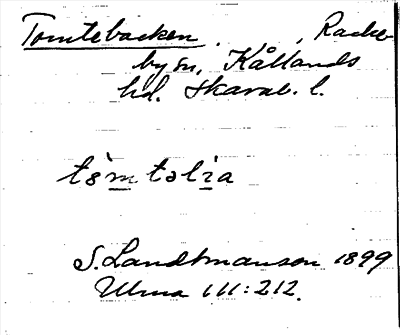 Tomtebacken, Racke-
by sn, Kållands
hd. Skarab. l.
tòmtəlia
S. Landtmanson 1899
Ulma 111:212.